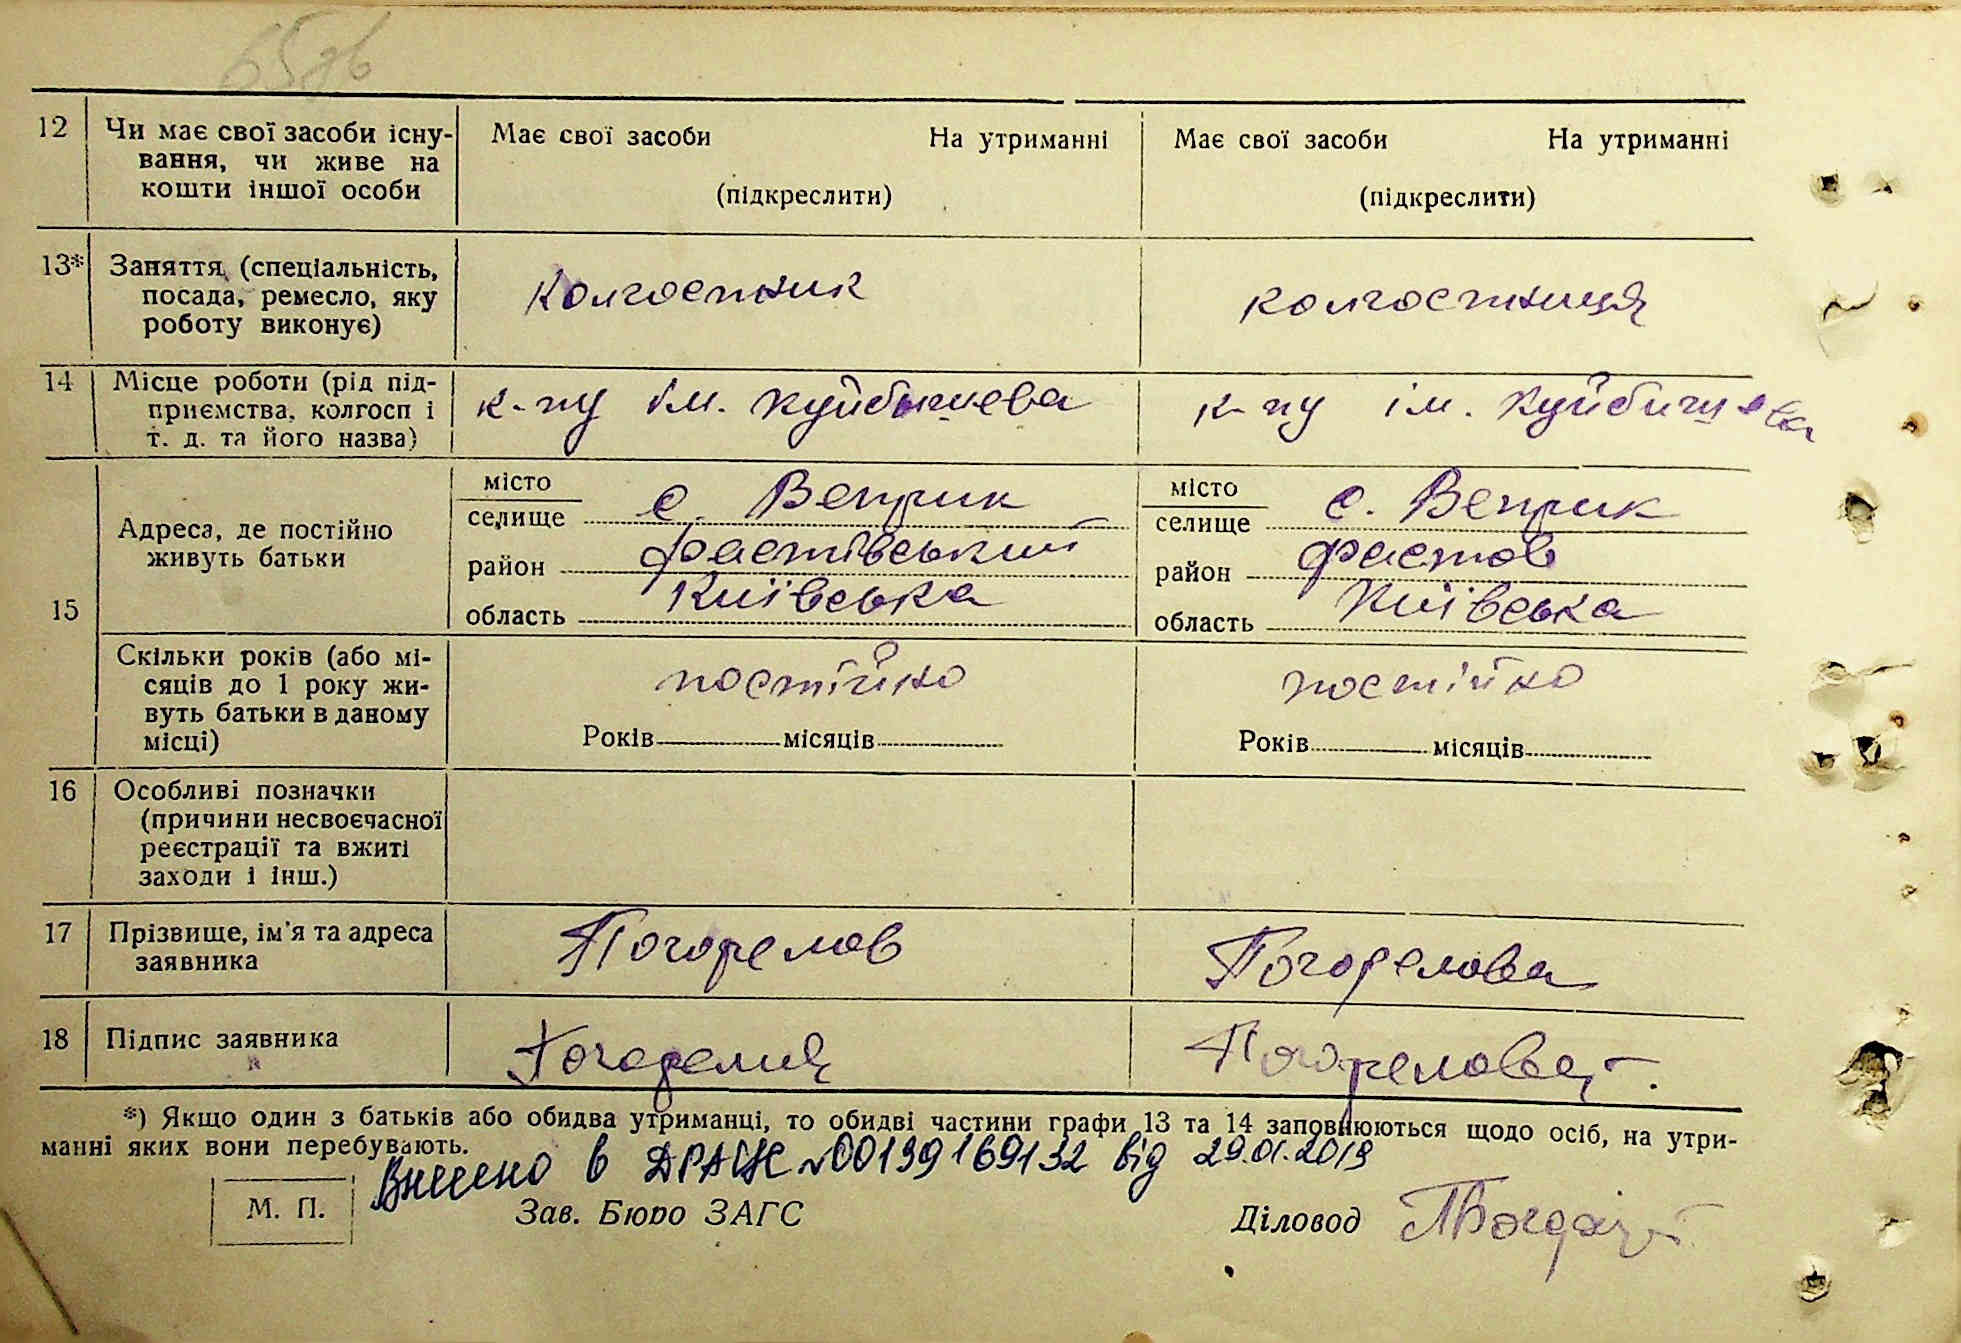 65 зв
12 Чи має свої засоби існу-
вання, чи живе на
кошти іншої особи
Має свої засоби На утриманні
(підкреслити)
Має свої засоби На утриманні
(підкреслити)
13* Заняття (спеціальність,
посада, ремесло, яку
роботу виконує)
Колгоспник
колгоспниця
14 Місце роботи (рід під-
приємства, колгосп і
т. д. та його назва)
к-пу ім. Куйбишева
к-пу ім. Куйбишева
15
Адреса, де постійно
живуть батьки
місто
селище с. Веприк
район Фастівський
область Київська
місто
селище с. Веприк
район Фастов
область Київська
Скільки років (або мі-
сяців до 1 року жи-
вуть батьки в даному
місці)
постійно
Років місяців
постійно
Років місяців
16 Особливі позначки
(причини несвоєчасної
реєстрації та вжиті
заходи і інш.)
17 Прізвище, ім'я та адреса
заявника
Погорелов
Погорелова
18 Підпис заявника
Погорелова
*) Якщо один з батьків або обидва утриманці, то обидві частини графи 13 та 14 заповнюються щодо осіб, на утри-
манні яких вони перебувають.
Внесено в ДРАЦС №00139169132 від 29.01.2019
М. П.
Зав. Бюро ЗАГС
Діловод